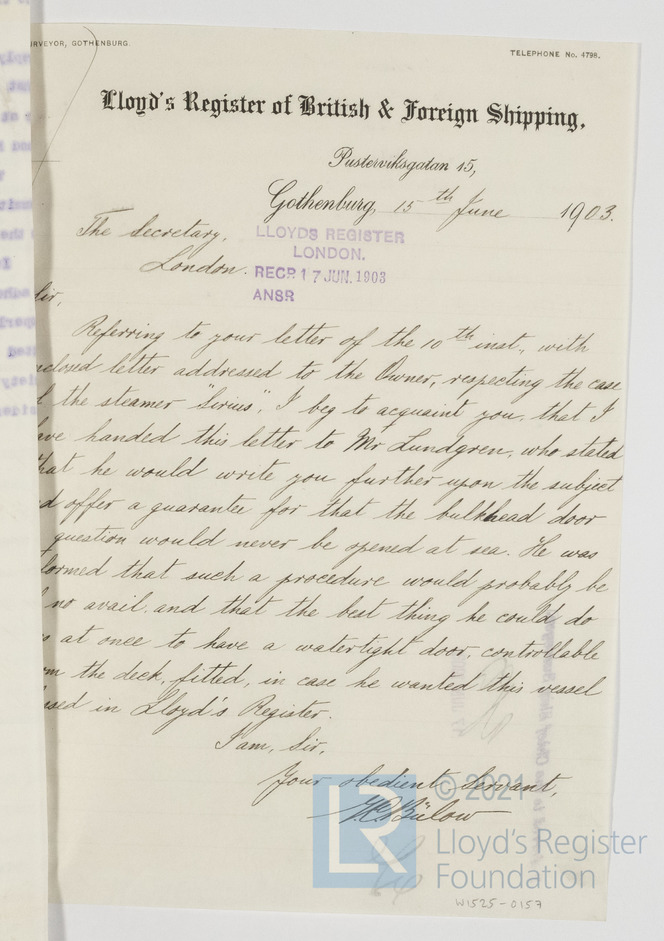 RVEYOR, GOTHENBURG.
TELEPHONE No. 4798.
Lloyd's Register of British & Foreign Shipping,
Pusterviksgatan 15,
Gothenburg, 15th June 1903.
The Secretary,
London.
LLOYDS REGISTER
LONDON.
RECP. 17 JUN. 1903
ANSR
Sir,
Referring to your letter of the 10th inst., with
nclosed letter addressed to the Owner, respecting the case
f the steamer "Sirius", I beg to acquaint you, that I
ave handed this letter to Mr Lundgren, who stated
hat he would write you further upon the subject
d offer a guarantee for that the bulkhead door
question would never be opened at sea. He was
formed that such a procedure would probably be
f no avail, and that the best thing he could do
s at once to have a watertight door, controllable
om the deck, fitted, in case he wanted this vessel
ased in Lloyd's Register.
I am, Sir,
Your obedient Servant,
Bülow
© 2021
LR
Lloyd's Register
Foundation
W1525-0157